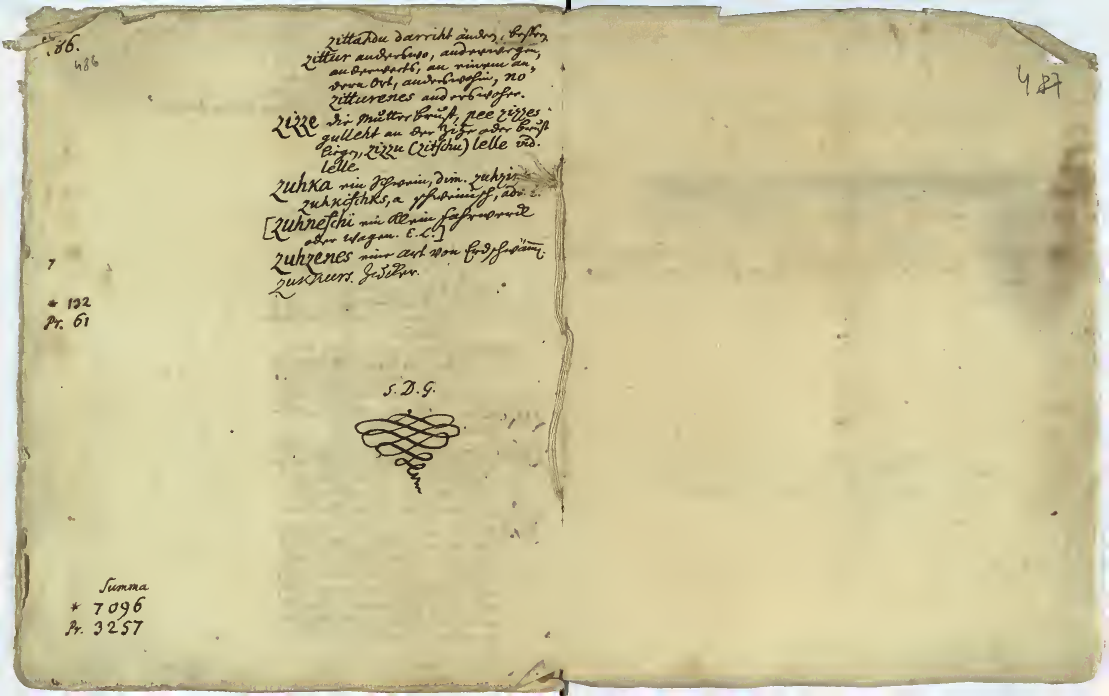 486.
486
zittahdu darriht ändern, bessern
zittur anderswo, anderwegen,
anderwerts, an einem an-
dern Ort, anderswohin, no
zitturenes anderswoher.
zizze die Mutter brust, pee zizzes
gulleht an der Zize oder brust
liegen, zizzu (zitschu) lelle vid.
lelle.
zuhka ein Schwein, dim. zuhzin
zuhkischks, a schweinisch, adv. i.
[zuhneschi ein klein Fahrwerck
oder Wagen. E.L.]
zuhzenes eine art von Erdschwämm.
zukkurs. Zucker.
7
* 132
Pr. 61
S. D. G.
Summa
* 7096
Pr. 3257
487